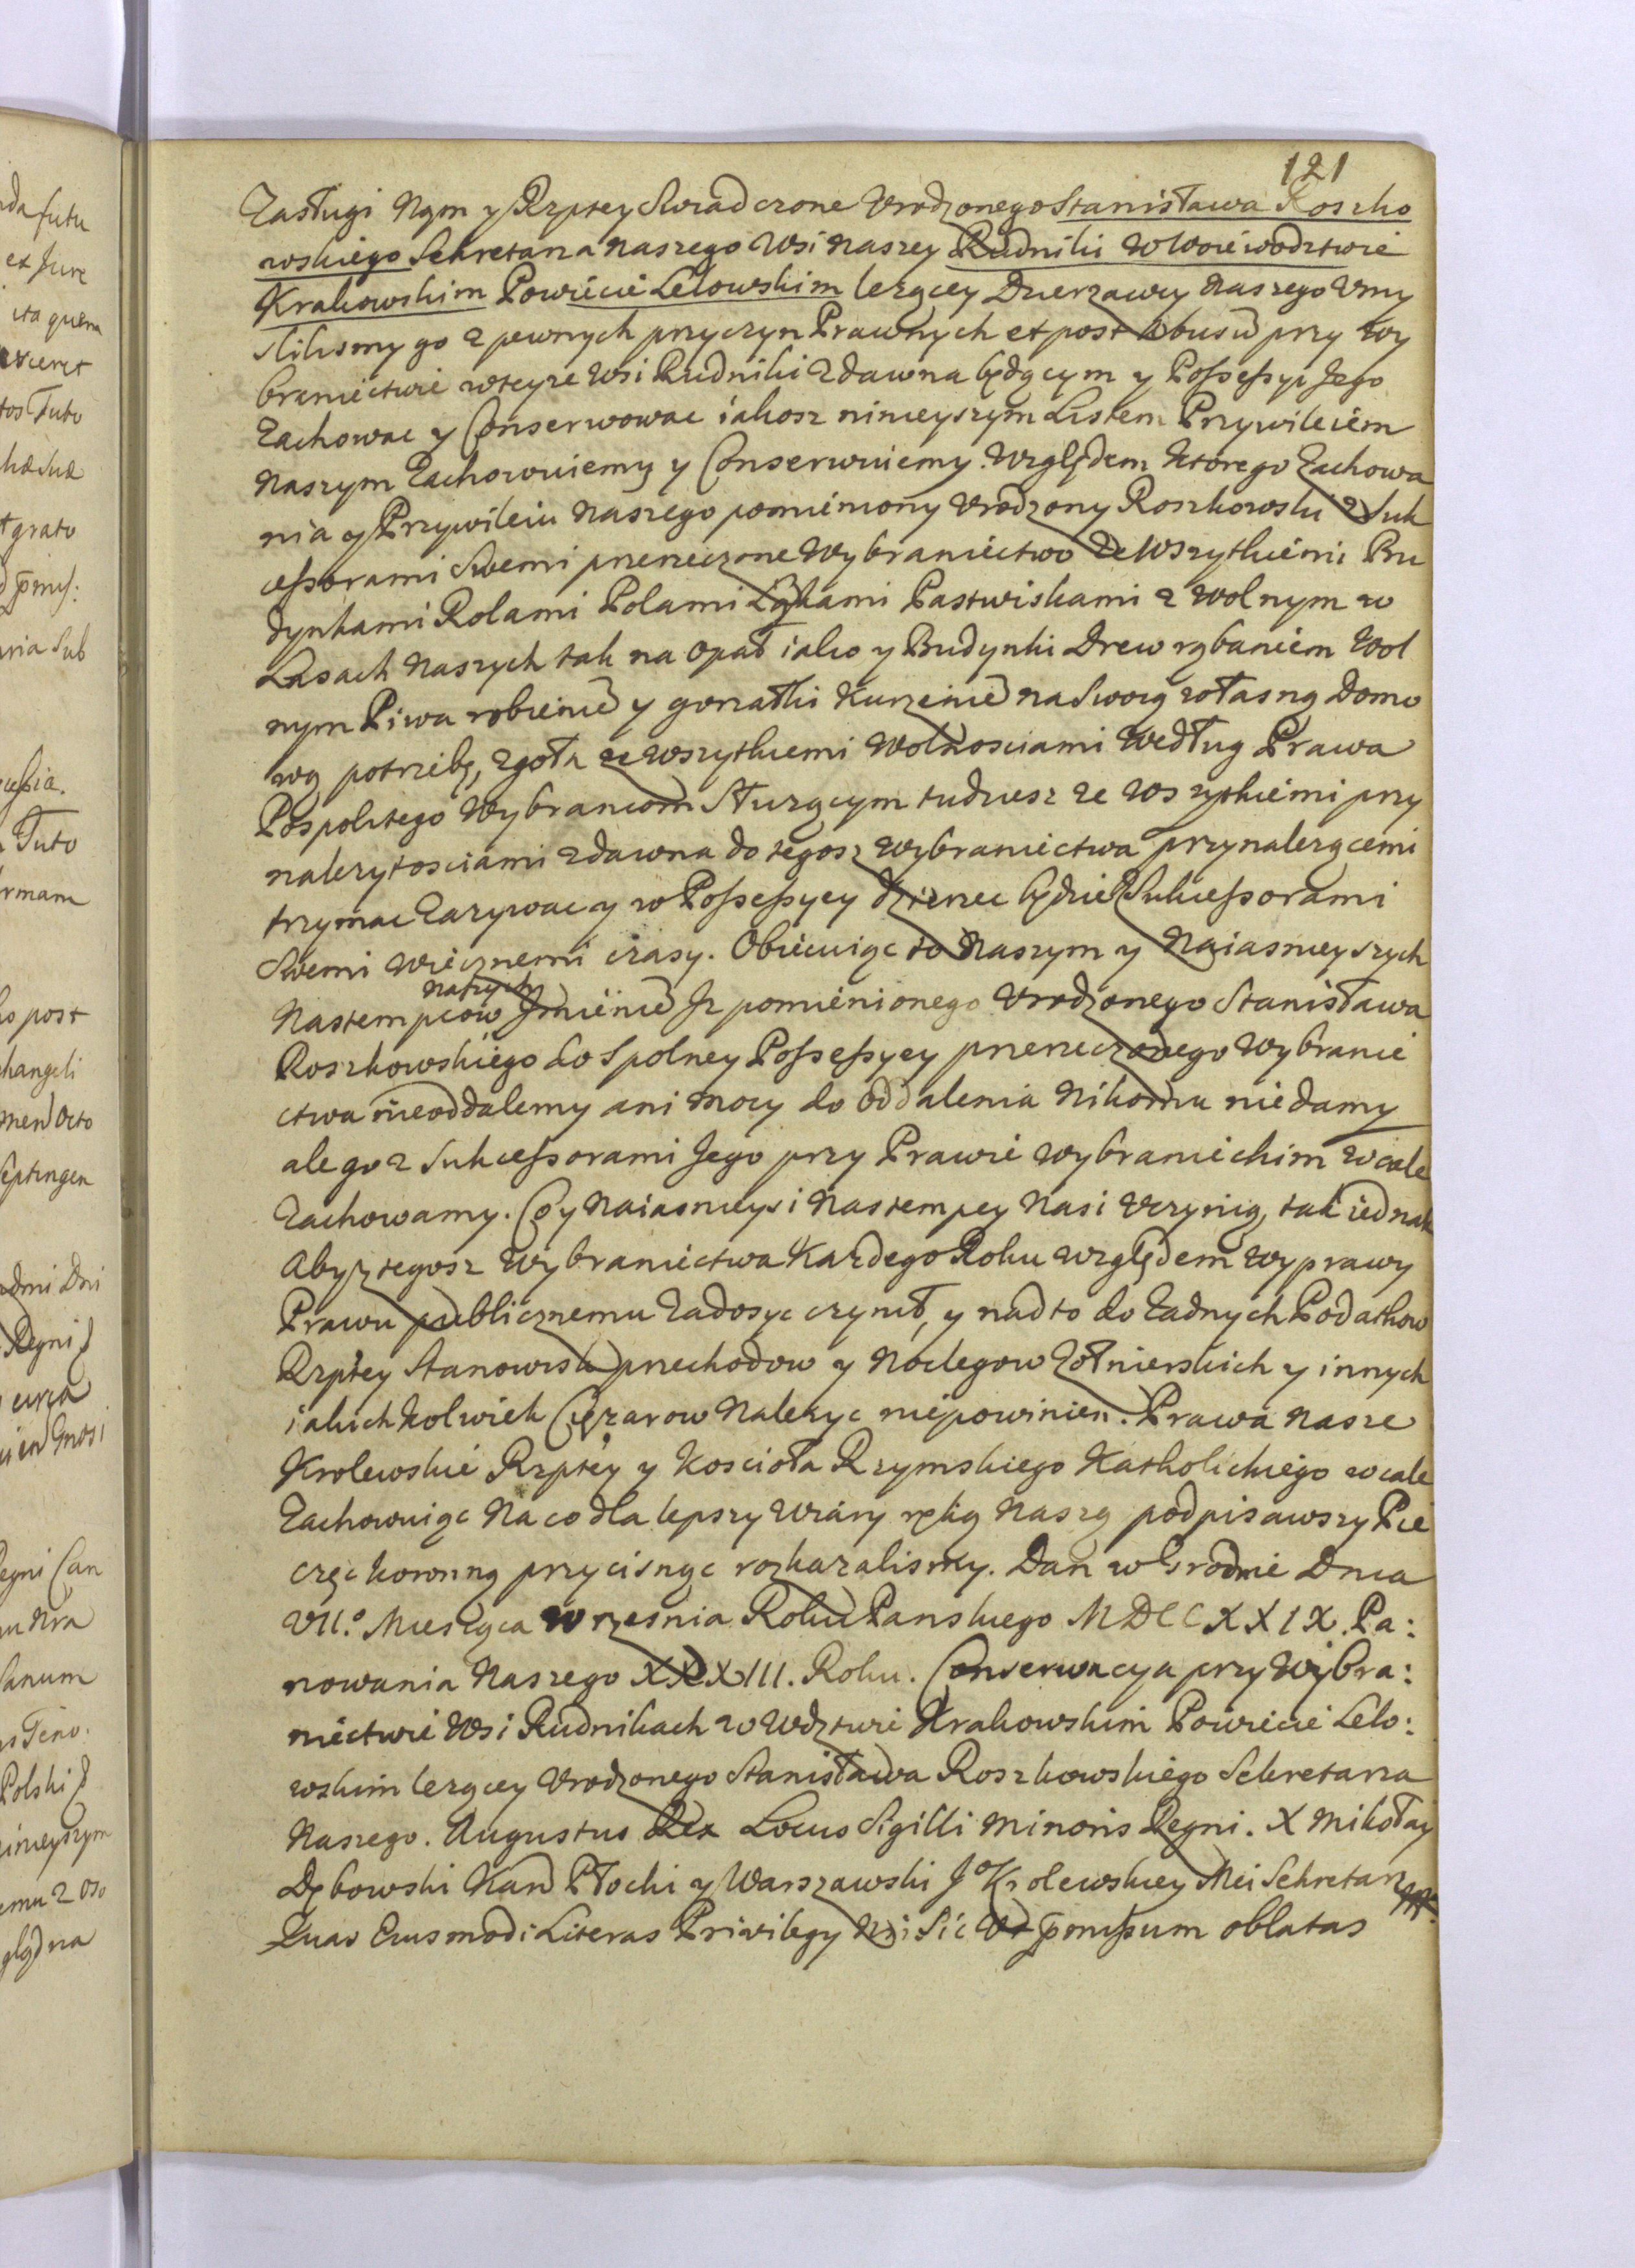 121
Zasługi Nąm y Rzptey Swiadczone Vrodzonego Stanisława Roszko
wskiego Sekretarza Naszego Wsi Naszey Rudniki w Woiewodztwie
Krakowskim Powiecie Lelowskim lezącey Dzierzawcy Naszego Vmy
slilismy go z pewnych przyczyn Prawnych et post abusū przy Wy
braniectwie wteyze Wsi Rudniki zdawna będącym y Possessyi Jego
Zachowac y Conserwowac iakosz ninieyszym Listem Przywileiem
Naszym Zachowuiemy y Conserwuiemy. Względem ktorego Zachowa
nia y Przywileiu Naszego pomieniony Vrodzony Roszkowski z Suk
cessorami Swemi przerzeczone Wybraniectwo ze Wszytkiemi Bu
dynkami Rolami Polami Łąkami Pastwiskami z Wolnym w
Lasach Naszych tak na Opał iako y Budynki Drew rąbaniem Wol
nym Piwa robienie y gorzałki Kurzenie na Swoią własną Domo
wą potrzebę, zgoła ze wszytkiemi Wolnosciami Według Prawa
Pospolitego Wybrancom Słuzącym tudziesz ze wszytkiemi przy
nalezytosciami zdawna do tegosz Wybraniectwa przynalezącemi
trzymac Zazywac y w Possessyey dzierzec będzie z Sukcessorami
Swemi wiecznemi czasy. Obiecuiąc to Naszym y Naiasnieyszych
Naszych
Nastempcow Jmieniē Jz pomienionego Vrodzonego Stanisława
Roszkowskiego do Spolney Possessyey przerzeczonego Wybranie
ctwa nieoddalemy ani mocy do oddalenia Nikomu niedamy
ale go z Sukcessorami Jego przy Prawie Wybranieckim wcale
Zachowamy. Co y Naiasnieysi Nastempcy Nasi Vczynią, tak iednak
aby z tegosz Wybraniectwa Kazdego Roku względem Wyprawy
Prawu publicznemu Zadosyc czynił, y nadto do Zadnych Podatkow
Rzptey Stanowisk przechodow y Noclegow Zołnierskich y innych
iakichkolwiek Cięzarow Nalezyc niepowinien. Prawa Nasze
Krolewskie Rzptey y Koscioła Rzymskiego Katholickiego wcale
Zachowuiąc Na co dla lepszy Wiary ręką Naszą podpisawszy Pie
częc koronną przycisnąc rozkazalismy. Dan w Grodnie Dnia
VII.° Miesiąca Wrzesnia Roku Panskiego MDCCXXIX. Pa:
nowania Naszego XXXIII. Roku. Conserwacya przy Wybra:
niectwie Wsi Rudnikach w Wdztwie Krakowskim Powiecie Lelo:
wskim lezącey Vrodzonego Stanisława Roszkowskiego Sekretarza
Naszego. Augustus Rex Locus Sigilli Minoris Regni. X Mikołay
Dębowski Kan Płocki y Warszawski J° Krolewskiey Mci Sekretarz
Quas Eiusmodi Literas Privilegy Sic Vt pmissum oblatas